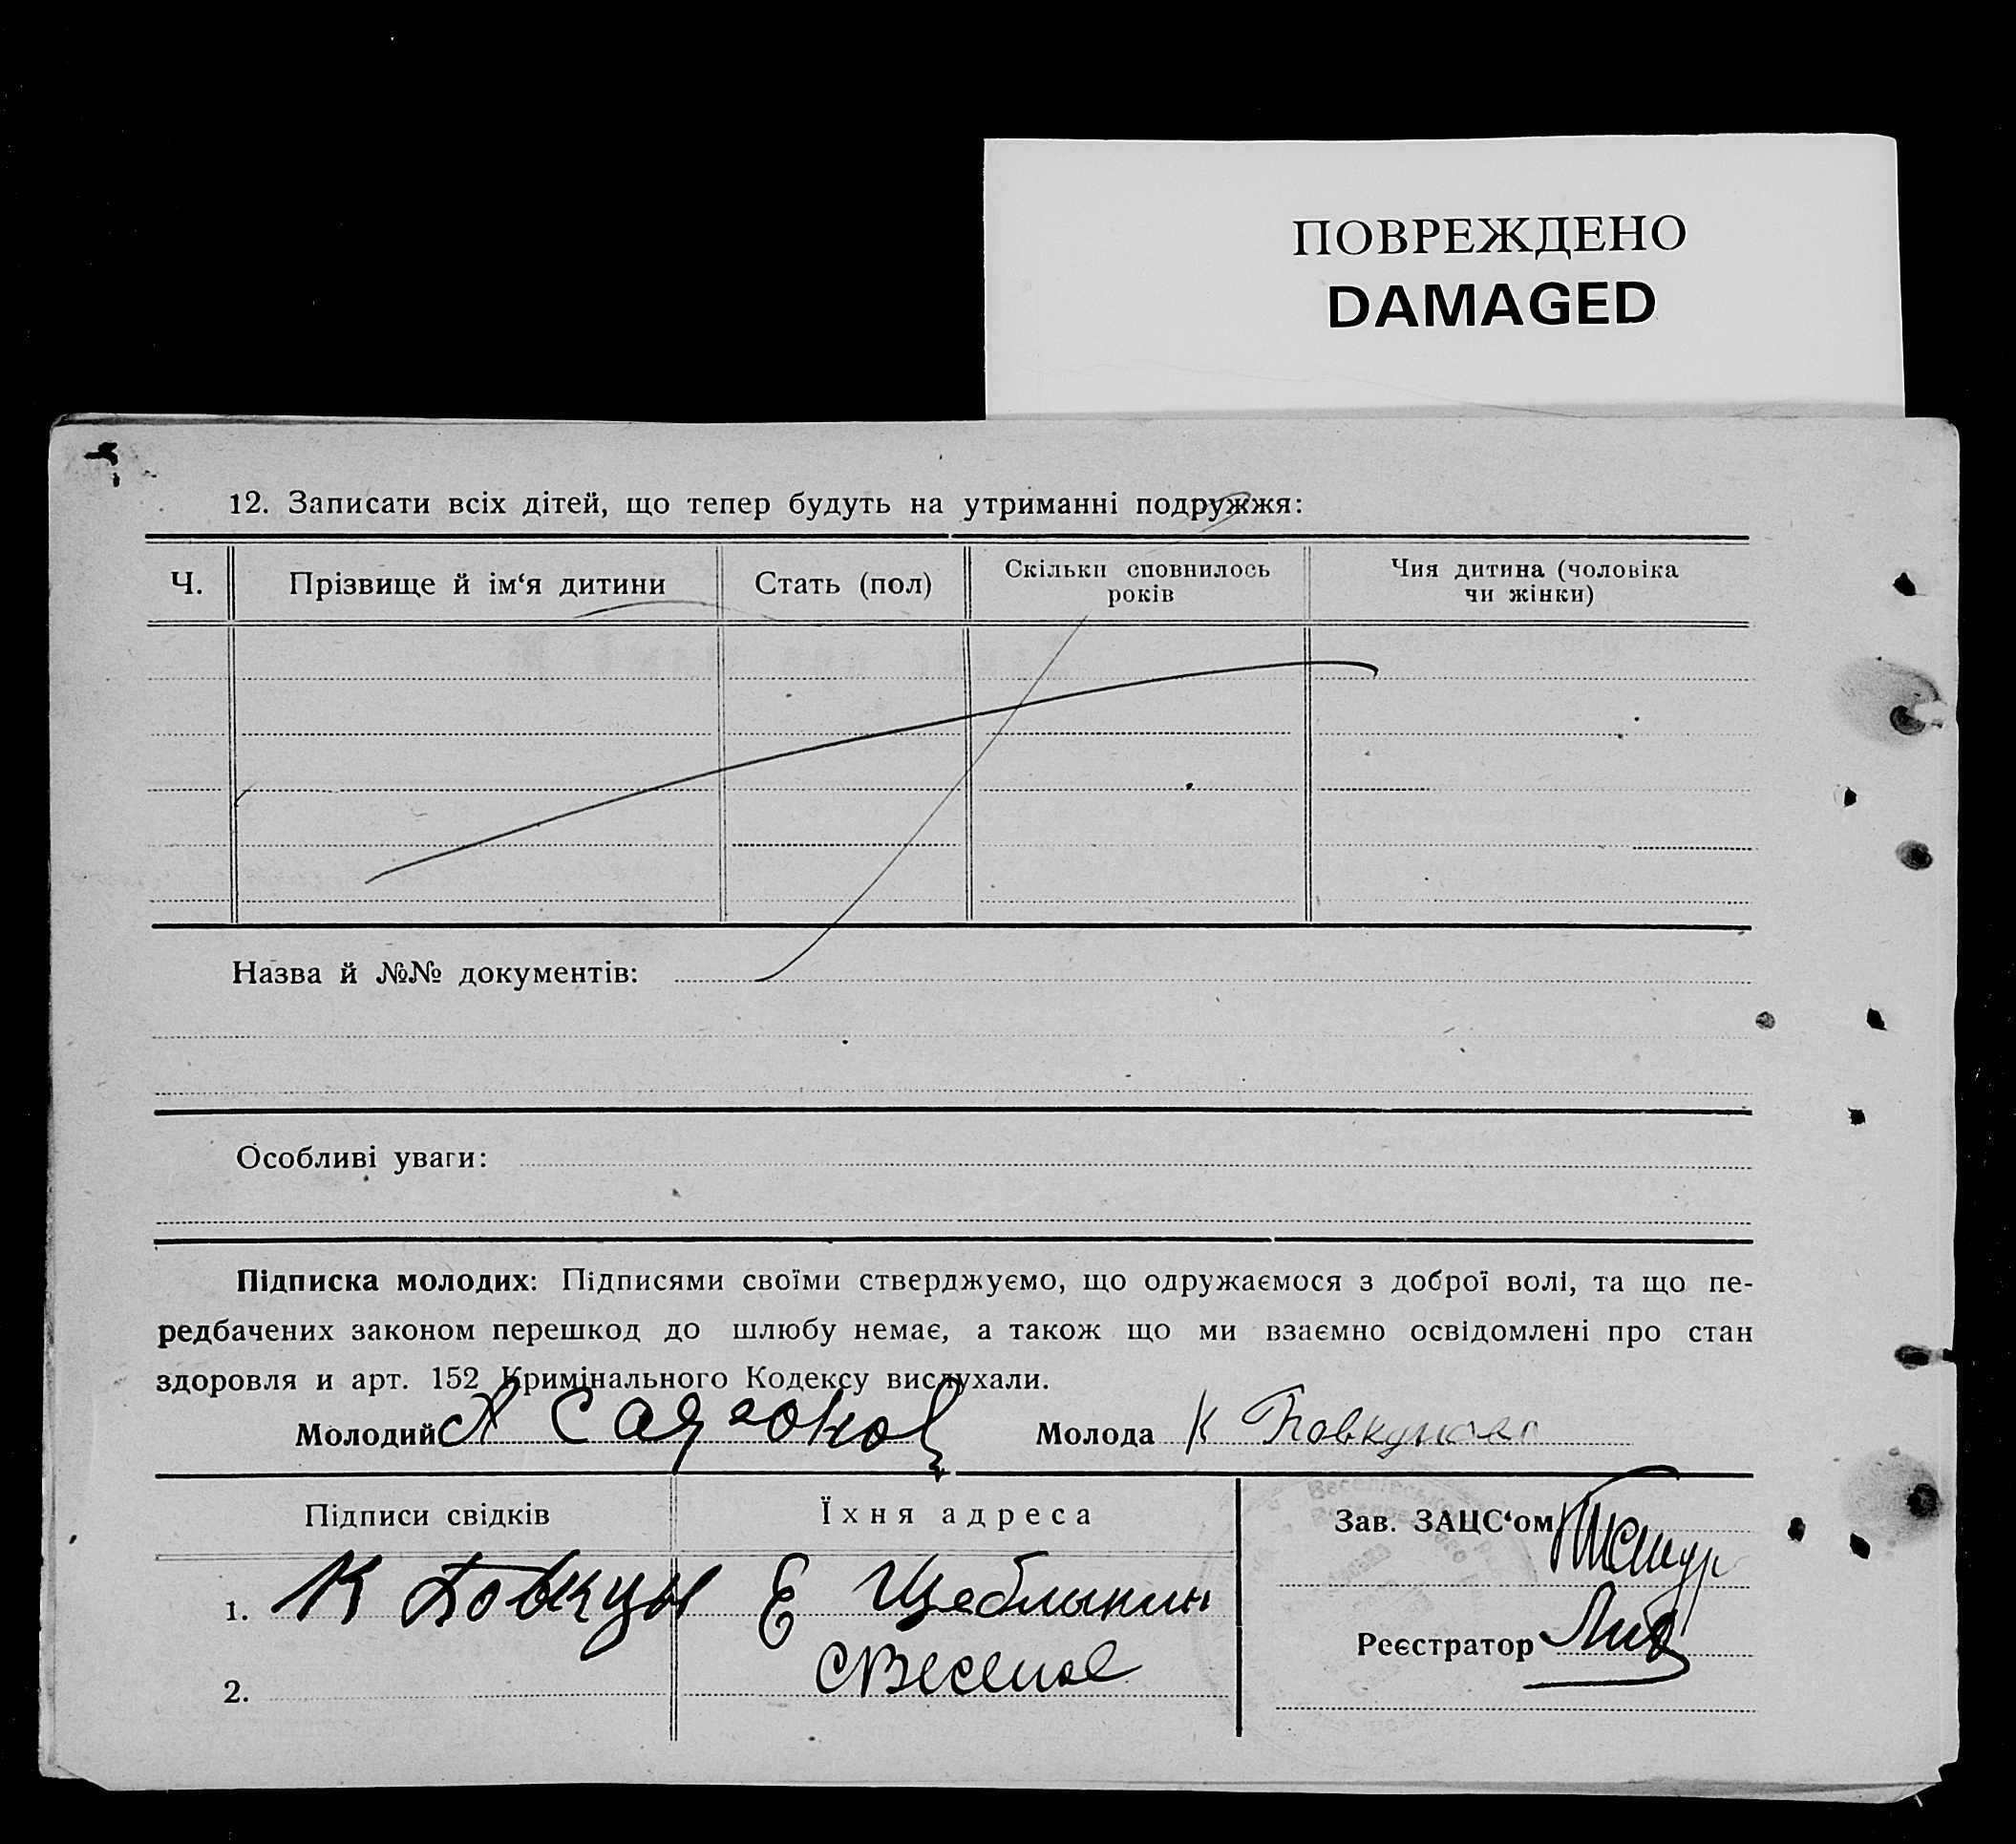 ПОВРЕЖДЕНО
DAMAGED
12. Записати всіх дітей, що тепер будуть на утриманні подружжя:
Ч. Прізвище й ім‘я дитини Стать (пол) Скільки сповнилось років Чия дитина (чоловіка чи жінки)
Назва й №№ документів:
Особливі уваги:
Підписка молодих: Підписями своїми стверджуємо, що одружаємося з доброї волі, та що пе-
редбачених законом перешкод до шлюбу немає, а також що ми взаємно освідомлені про стан
здоровля и арт. 152 Кримінального Кодексу вислухали.
Молодий Молода К
Підписи свідків Їхня адреса Зав. ЗАЦС‘ом
1. К Е Щеблыкин
Реєстратор
2.